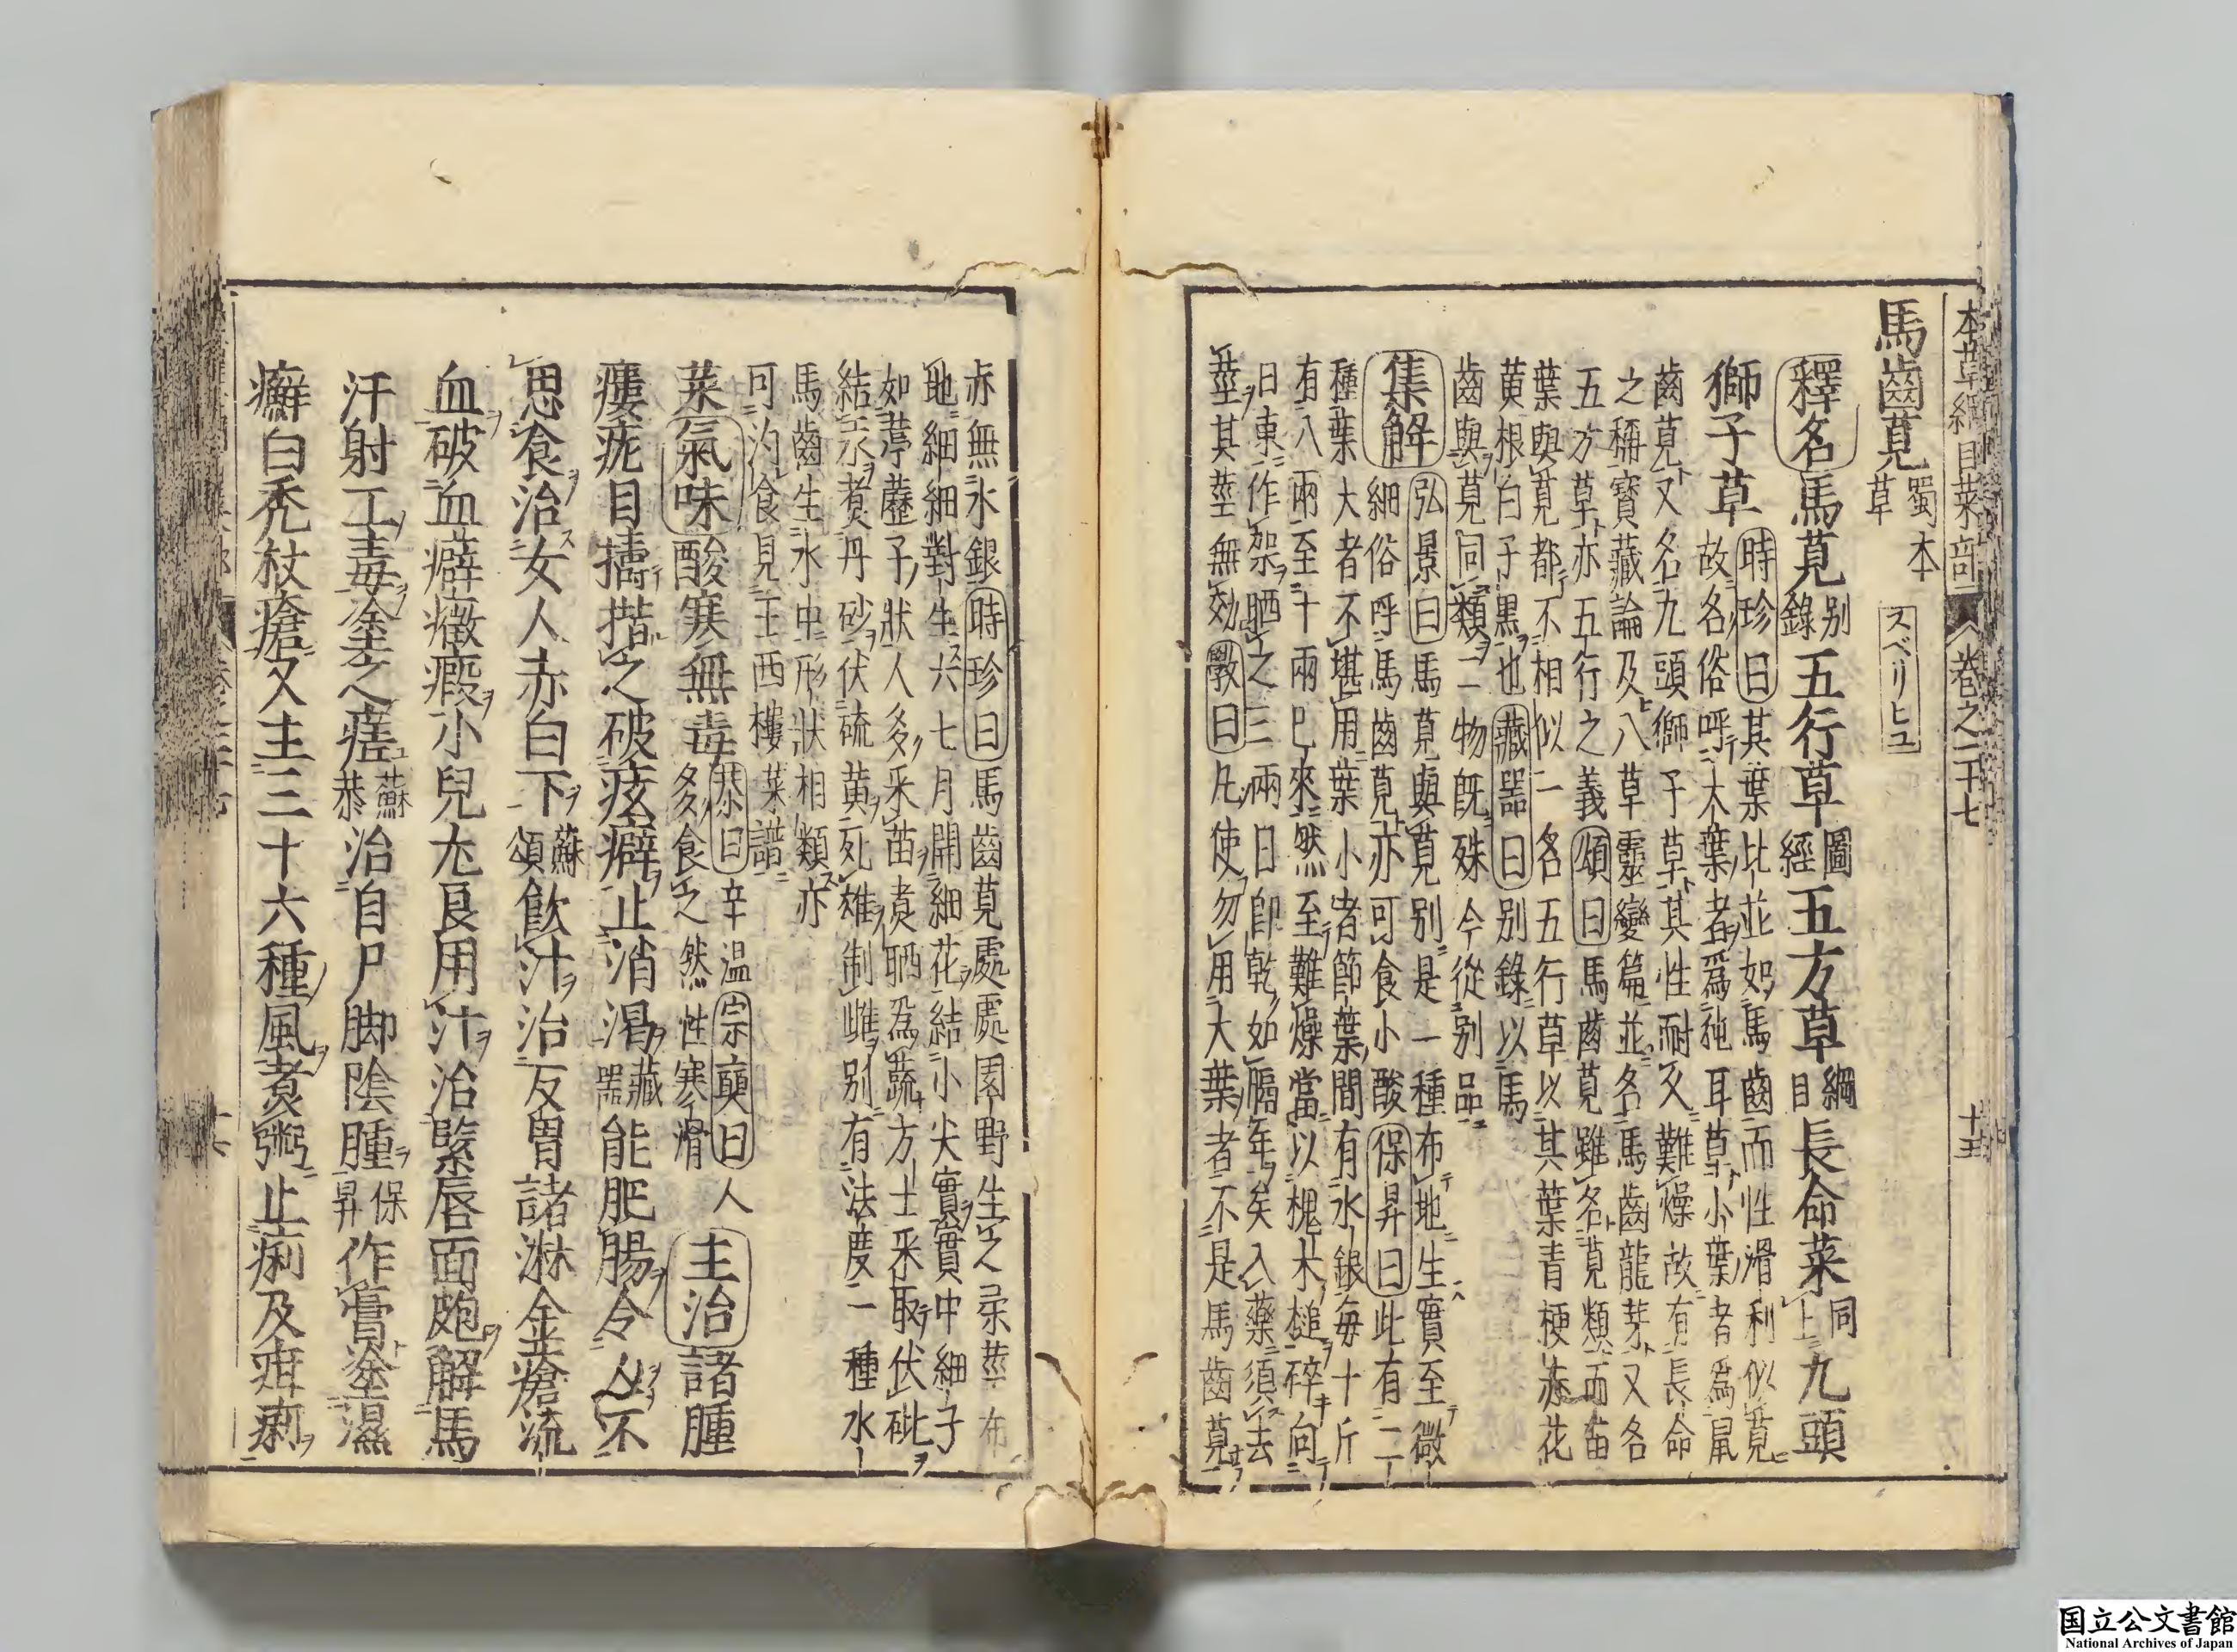 本草綱目菜部 卷之二十七 十五
馬齒莧 蜀本草 スベリヒユ
釋名 馬莧 别錄 五行草 圖經 五方草 綱目 長命菜 同上 九頭
獅子草 時珍曰其葉比並如馬齒而性滑利似莧
故名俗呼大葉者爲㹠耳草小葉者爲鼠
齒莧又名九頭獅子草其性耐久難燥故有長命
之稱寳藏論及八草靈變篇並名馬齒龍芽又名
五方草亦五行之義頌曰馬齒莧雖名莧類而苗
葉與莧都不相似一名五行草以其葉青梗赤花
黄根白子黑也藏器曰别錄以馬
齒與莧同類二物既殊今從别品
集解 弘景曰馬莧與莧别是一種布地生實至微
細俗呼馬齒莧亦可食小酸保昇曰此有二
種葉大者不堪用葉小者節葉間有水銀每十斤
有八兩至十兩巳來然至難燥當以槐木槌碎向
日東作架晒之三兩日卽乾如膃年矣入藥須去
莖其莖無效斆曰凡使勿用大葉者不是馬齒莧
亦無水銀時珍曰馬齒莧處處園野生之柔莖布
地細細對生六七月開細花結小尖實實中細子
如葶藶子狀人多釆苗煮晒爲蔬方士釆取伏砒
結汞煮丹砂伏硫黄死雄制雌别有法度一種水
馬齒生水中形狀相類亦
可汋食見王西樓菜譜
菜氣味酸寒無毒 恭曰辛温宗奭曰人多食之然性寒滑 主治 諸腫
瘻疣目擣揩之破痃癖止消渴 藏器 能肥腸令人不
思食治女人赤白下 蘇頌 飮汁治反胃諸淋金瘡流
血破血癖癥瘕小兒尢良用汁治緊唇面皰解馬
汗射工毒塗之瘥 蘇恭 治自尸脚陰腫 保昇 作膏塗濕
癬白禿杖瘡又主三十六種風煮粥止痢及疳痢
国立公文書館
National Archives of Japan